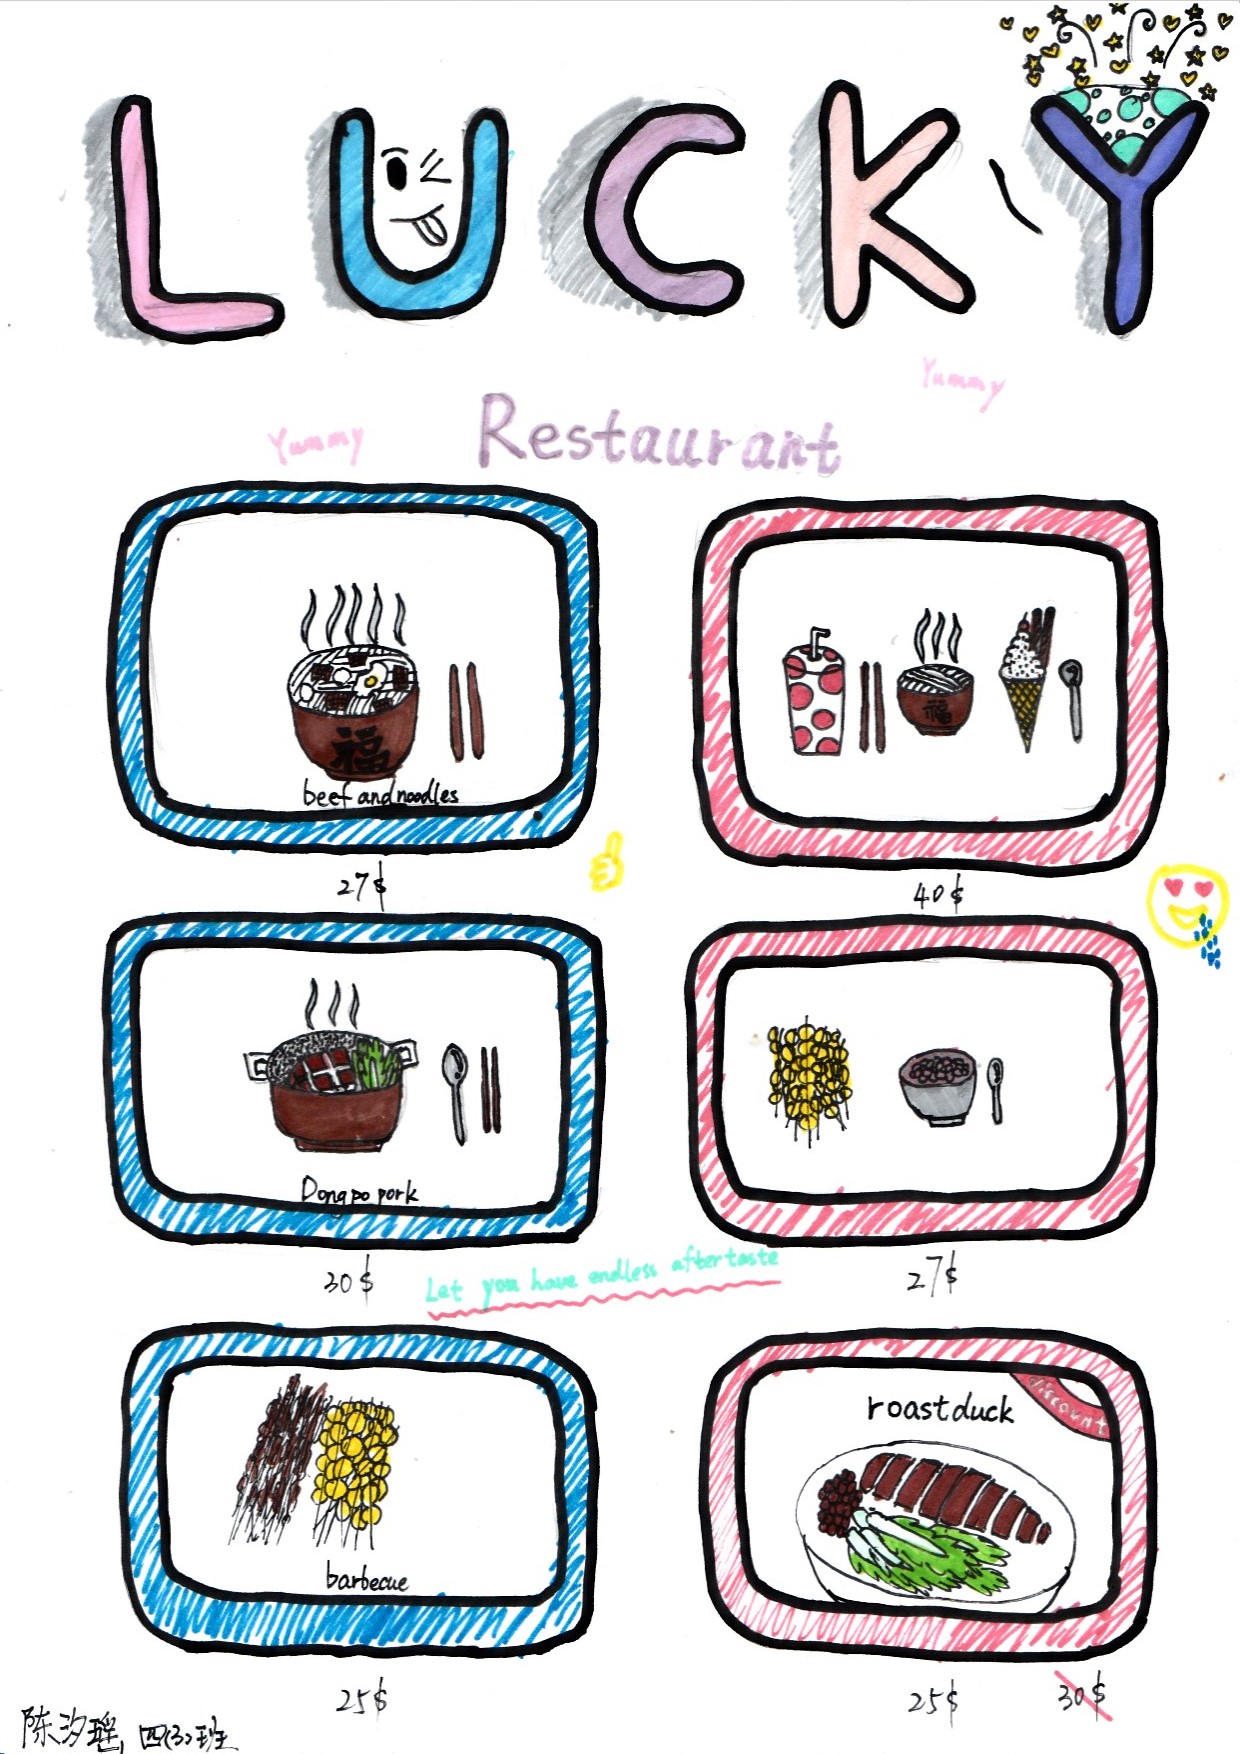 LUCKY
Yummy
Restaurant
Yummy
福
beef and noodles
27$
福
40$
Dongpo pork
30$
27$
Let you have endless aftertaste
barbecue
25$
discount
roast duck
25$ 30$
陈汐瑶, 四(3)班